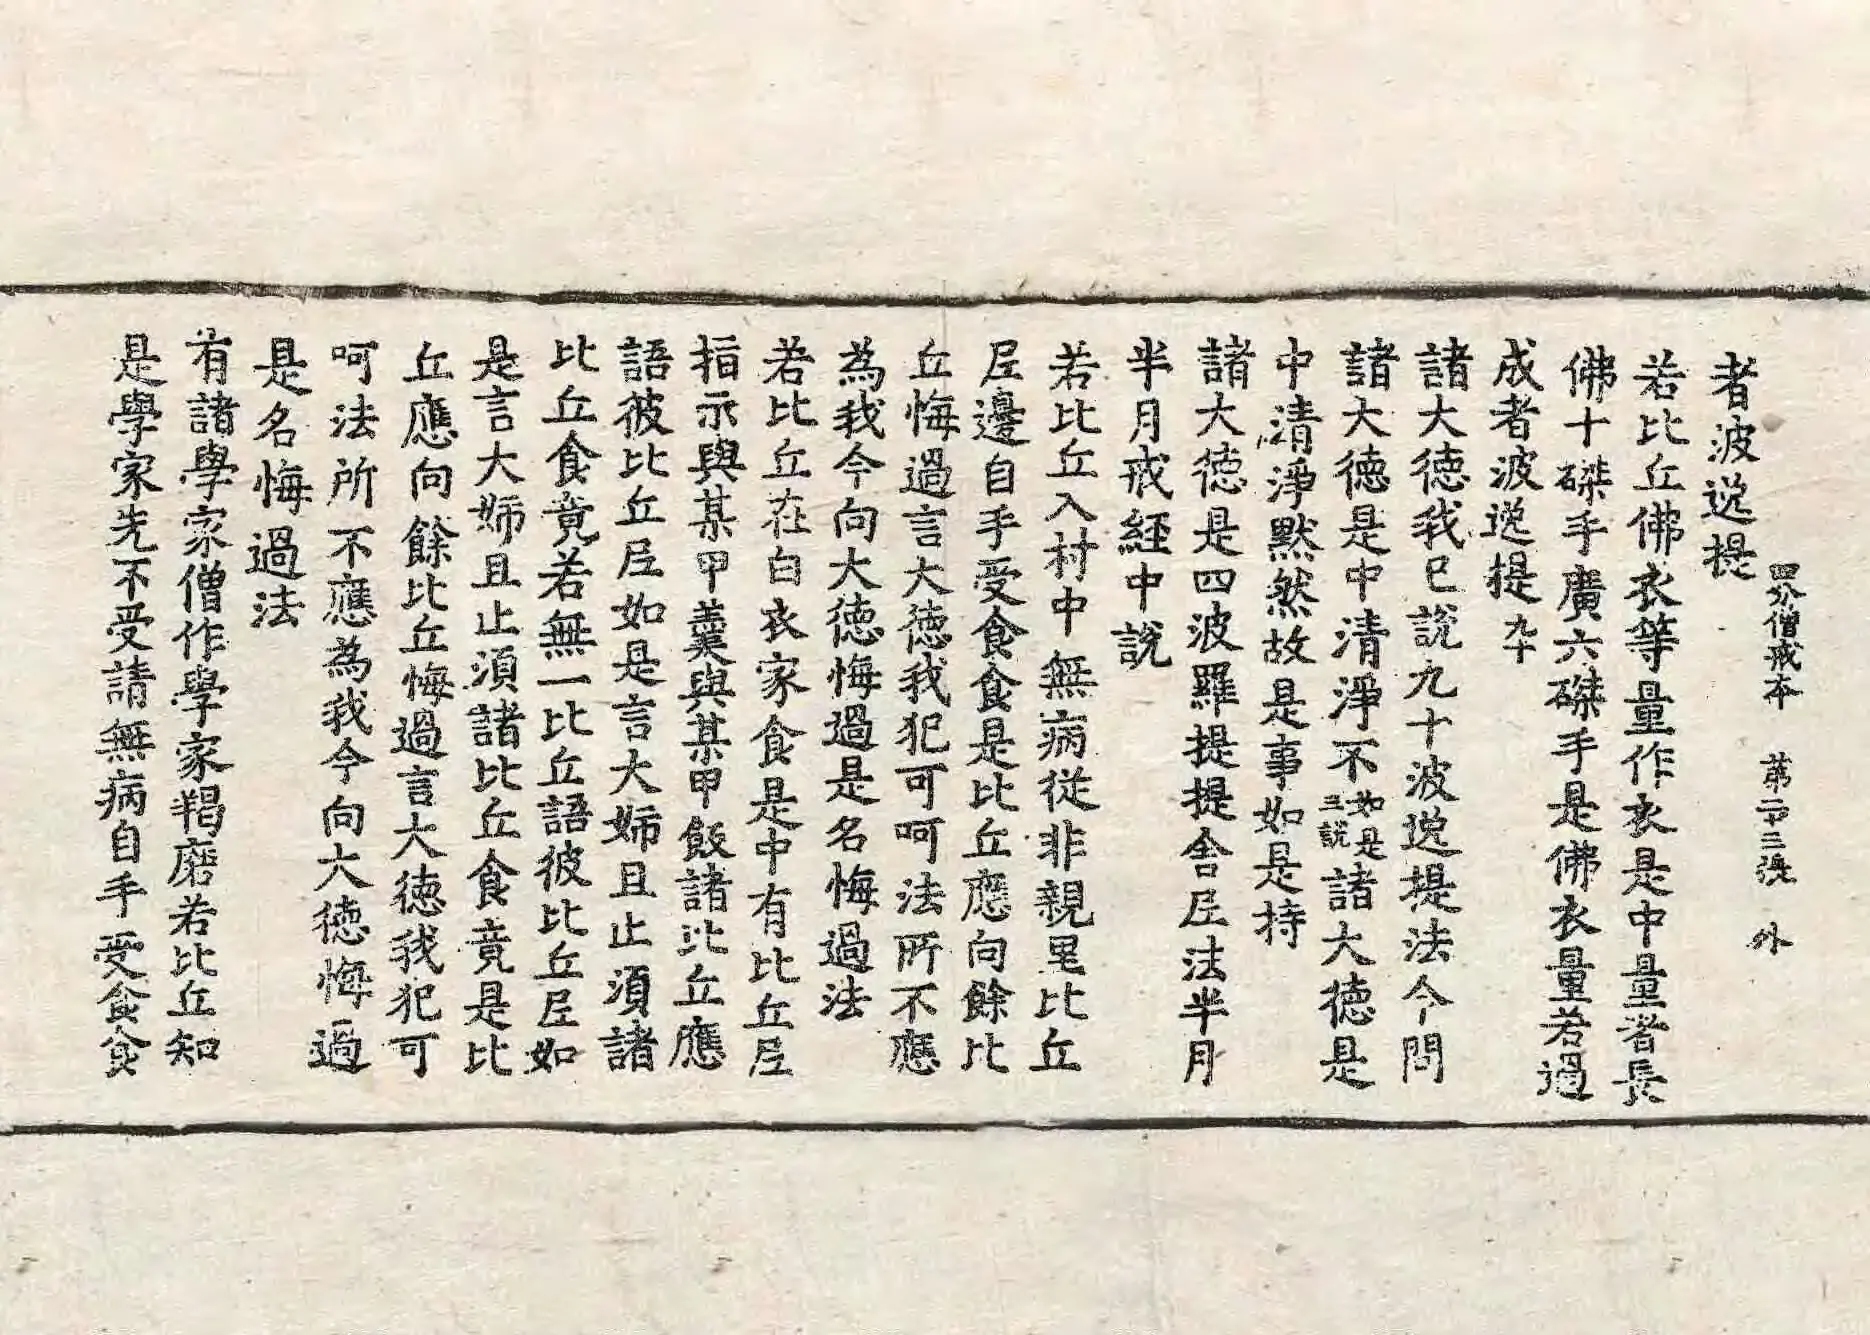 四分僧戒本 第二十三張 外
者波逸提
若比丘佛衣等量作衣是中量者長
佛十磔手廣六磔手是佛衣量若過
成者波逸提九十
諸大德我已說九十波逸提法今問
諸大德是中清淨不如是三說諸大德是
中清淨默然故是事如是持
諸大德是四波羅提提舍尼法半月
半月戒経中說
若比丘入村中無病從非親里比丘
尼邊自手受食食是比丘應向餘比
丘悔過言大德我犯可呵法所不應
為我今向大德悔過是名悔過法
若比丘在白衣家食是中有比丘尼
指示與某甲羹與某甲飯諸比丘應
語彼比丘尼如是言大姉且止須諸
比丘食竟若無一比丘語彼比丘尼如
是言大姉且止須諸比丘食竟是比
丘應向餘比丘悔過言大德我犯可
呵法所不應為我今向大德悔過
是名悔過法
有諸學家僧作學家羯磨若比丘知
是學家先不受請無病自手受食食